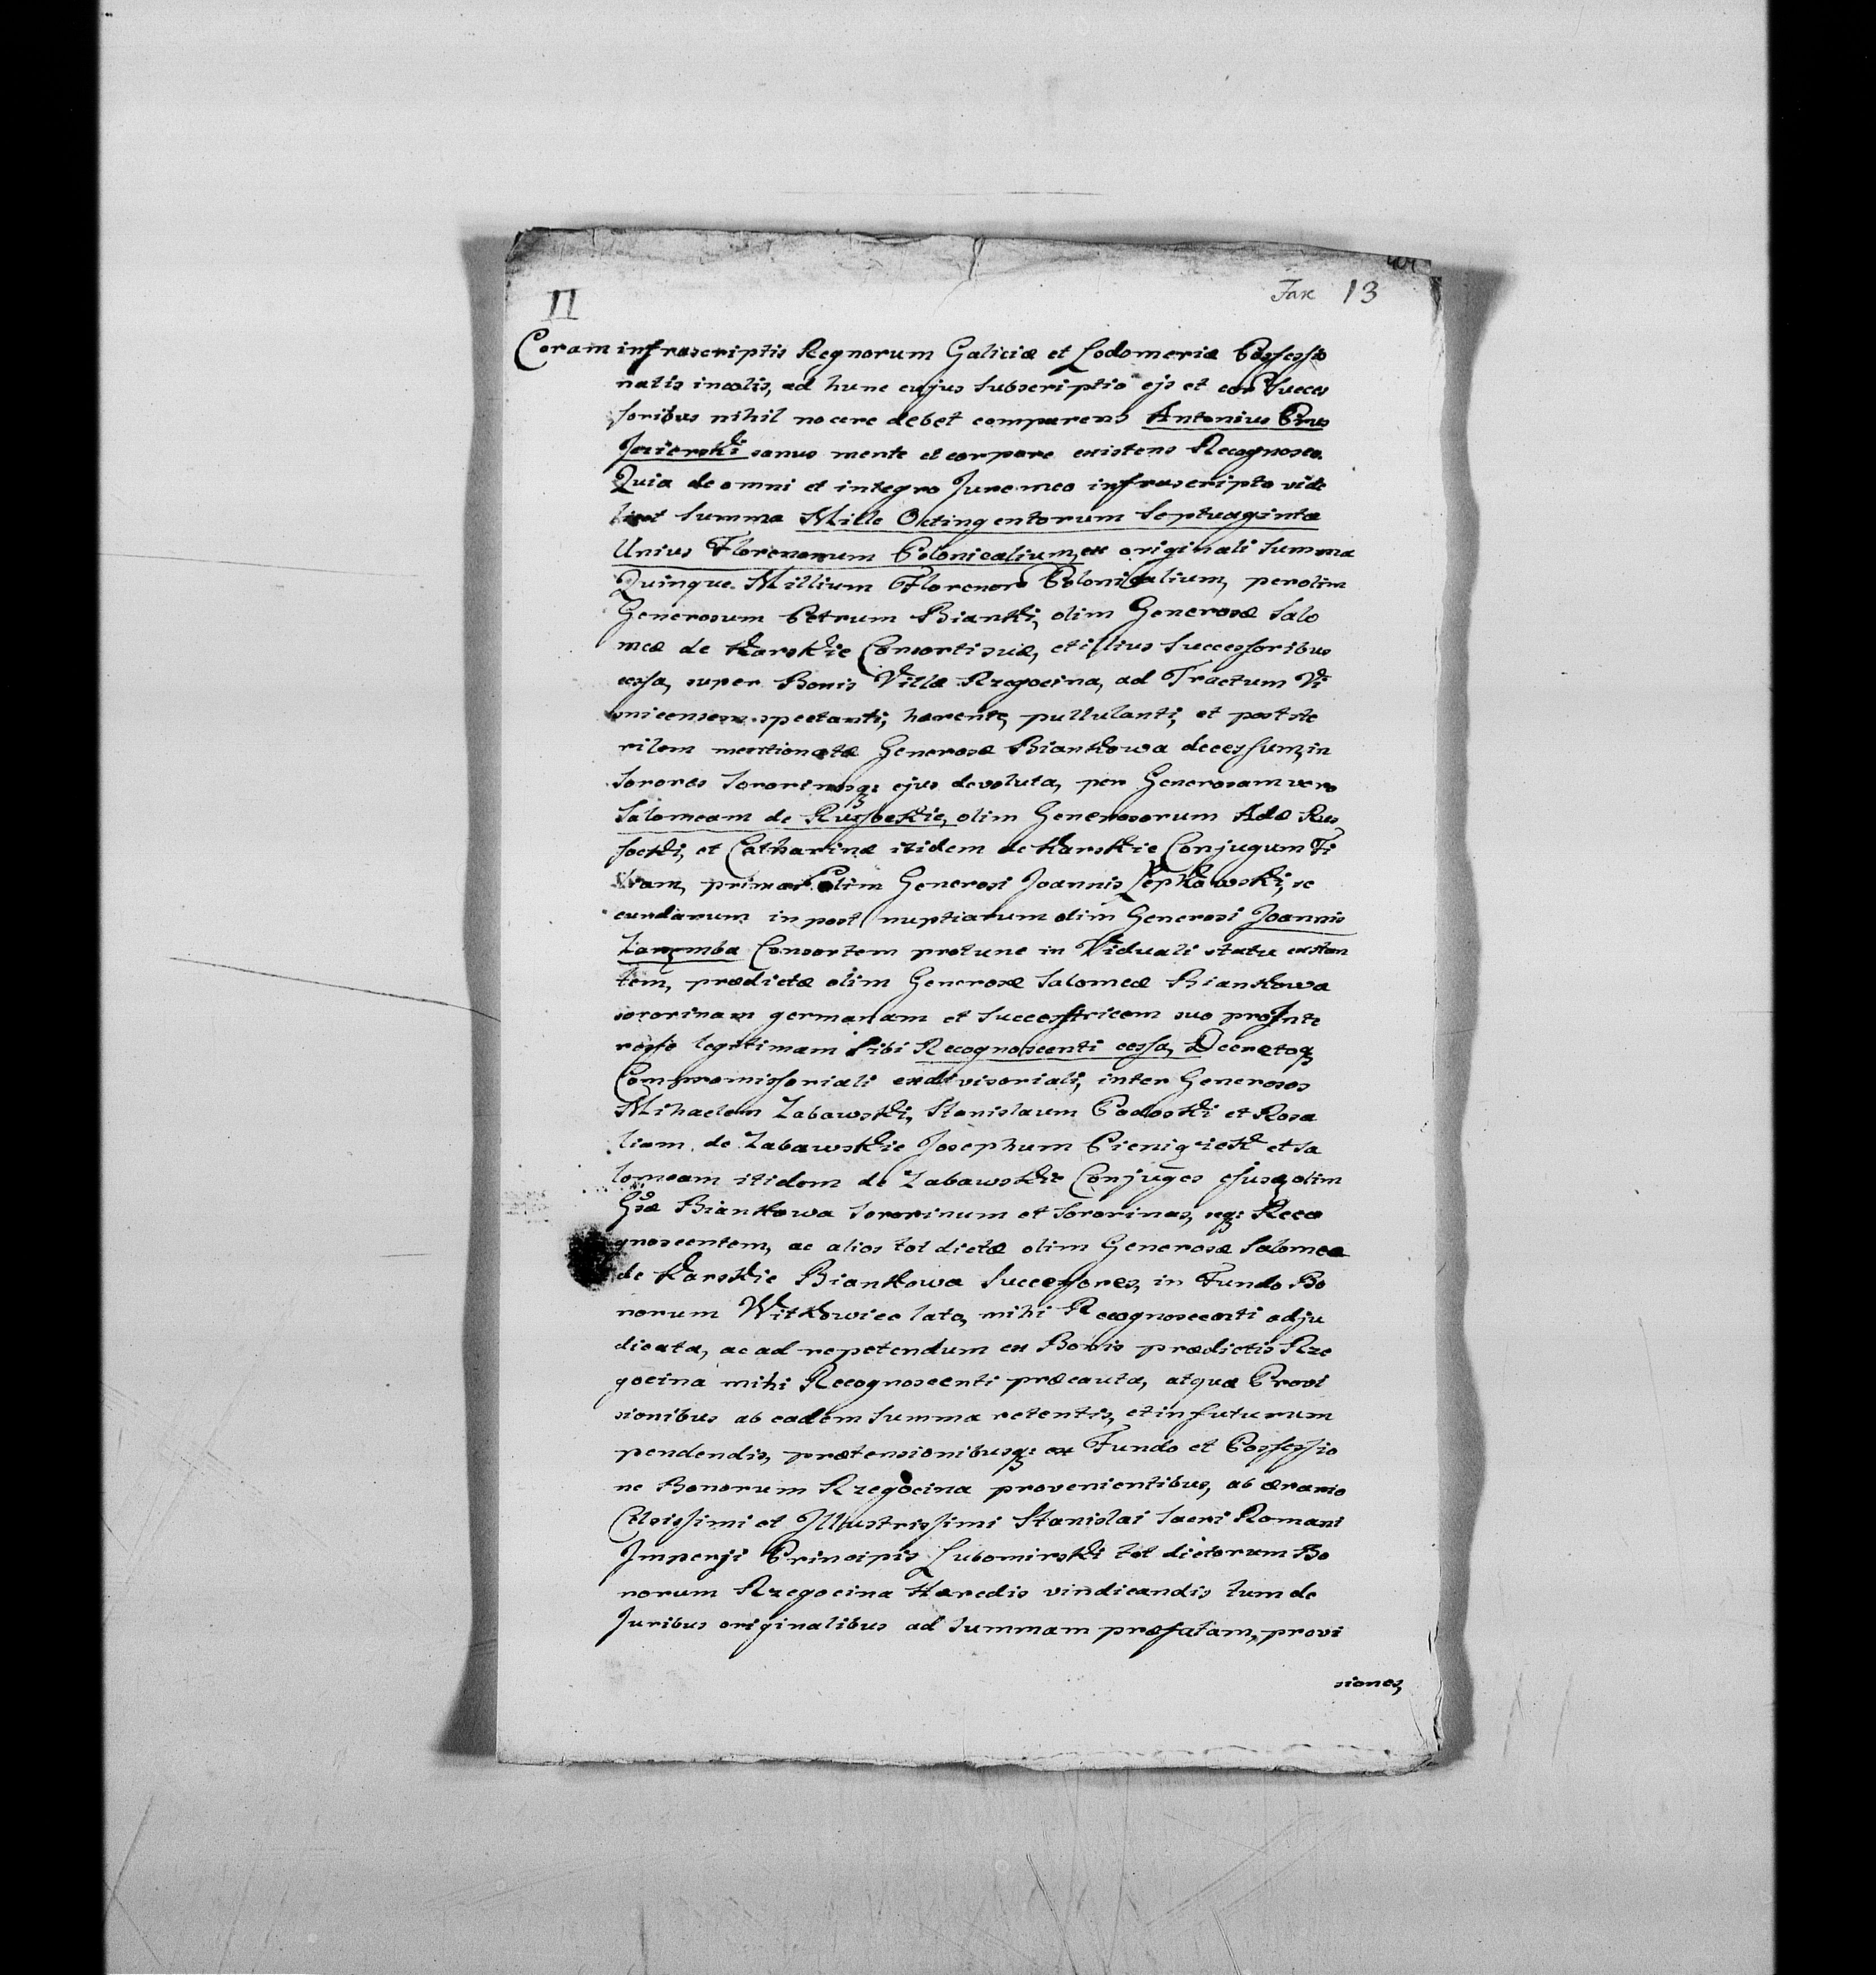 II
Fasc 13
Coram infrascriptis Regnorum Galiciæ et Lodomeriæ Possessio
natis incolis, ad hunc cujus subscriptio ejs et eor Succes
soribus nihil nocere debet comparens Antonius Prus
Jezierski sanus mente et corpore existens Recognosco.
Quia de omni et integro Jure meo infrascripto vide
licet Summa Mille Octingentorum Septuaginta
Unius Florenorum Polonicalium, ex originali Summa
Quinque Millium Florenor Polonicalium, per olim
Generosum Petrum Bianki, olim Generosæ Salo
meæ de Karskie Consorti suæ, et illius Successoribus
cessa, super Bonis Villæ Rzegocina, ad Tractum Vi
snicensem spectanti, hærente, pullulanti, et post ste
rilem mentionatæ Generosæ Biankowa decessum, in
Sorores Sororinosq: ejus devoluta, per Generosam vero
Salomeam de Russockie, olim Generosorum Adæ Rus
socki, et Catharinæ itidem de Karskie Conjugum Fi
liam, primar olim Generosi Joannis Łepkowski, se
cundarum in post nuptiarum olim Generosi Joannis
Zaremba Consortem protunc in Viduali statu existen
tem, prædictæ olim Generosæ Salomeæ Biankowa
sororinam germanam et Successtricem suo pro Inte
resse legitimam Sibi Recognoscenti cessa, Decretoq
Compromissoriali exdivisoriali, inter Generosos
Mihaelem Zabawski, Stanislaum Padoski et Rosa
liam de Zabawskie Josephum Pieniążek et Sa
lomeam itidem de Zabawskie Conjuges ejusq olim
Gsæ Biankowa Sororinum et Sororinas, seq: Reco
gnoscentem, ac alios tot dictæ olim Generosæ Salomeæ
de Karskie Biankowa Successores, in Fundo Bo
norum Witkowice lato, mihi Recognoscenti adju
dicata, ac ad repetendum ex Bonis prædictis Rze
gocina mihi Recognoscenti præcauta, atque Provi
sionibus ab eadem Summa retentis, et in futurum
pendendis, prætensionibusq: ex Fundo et Possessio
ne Bonorum Rzegocina provenientibus, ab ærario
Celsissimi et Illustrissimi Stanislai Sacri Romani
Imperji Principis Lubomirski tot dictorum Bo
norum Rzegocina Hæredis vindicandis tum de
Juribus originalibus ad Summam præfatam, provi
siones,